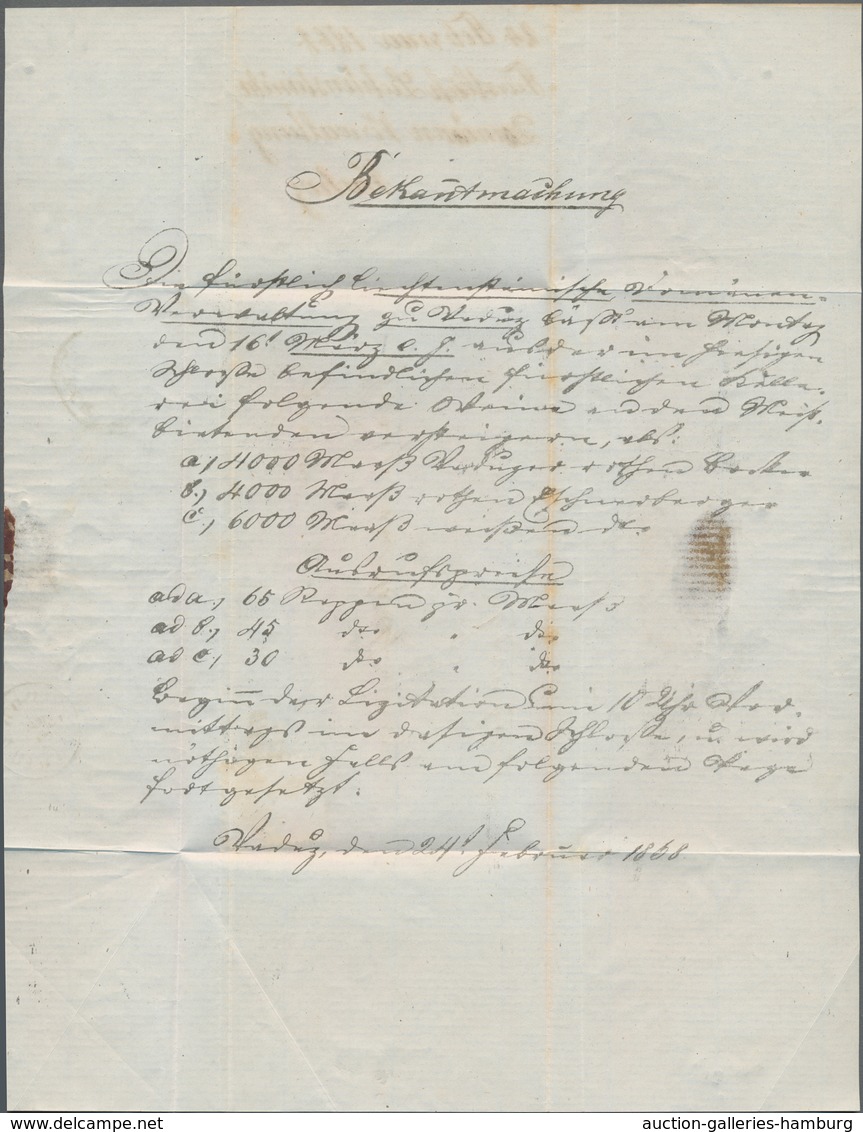 Bekan̄tmachung
Die fürstlich liechtensteinische Domänen-
Verwaltung zu Vaduz läßt am Montag
den 16t März l. J. aus der im hiesigen
Schloße befindlichen fürstlichen Kelle-
rei folgende Weine an den Meist-
bietenden versteigern, als:
a., 4000 Maaß Vaduzer rothen
b., 4000 Maaß rothen Eschnerberger
c., 6000 Maaß weißen dto
Ausrufspreise
ad a., 65 Rappen pr. Maaß
ad b., 45 dto " dto
ad c., 30 dto " dto
Begin̄ der Lizitation um 10 Uhr Vor-
mittags im dasigen Schloße, u. wird
nöthigen Falls am folgenden Tage
fortgesetzt.
Vaduz, den 24t Februar 1868
delcampe.net
auction-galleries-hamburg